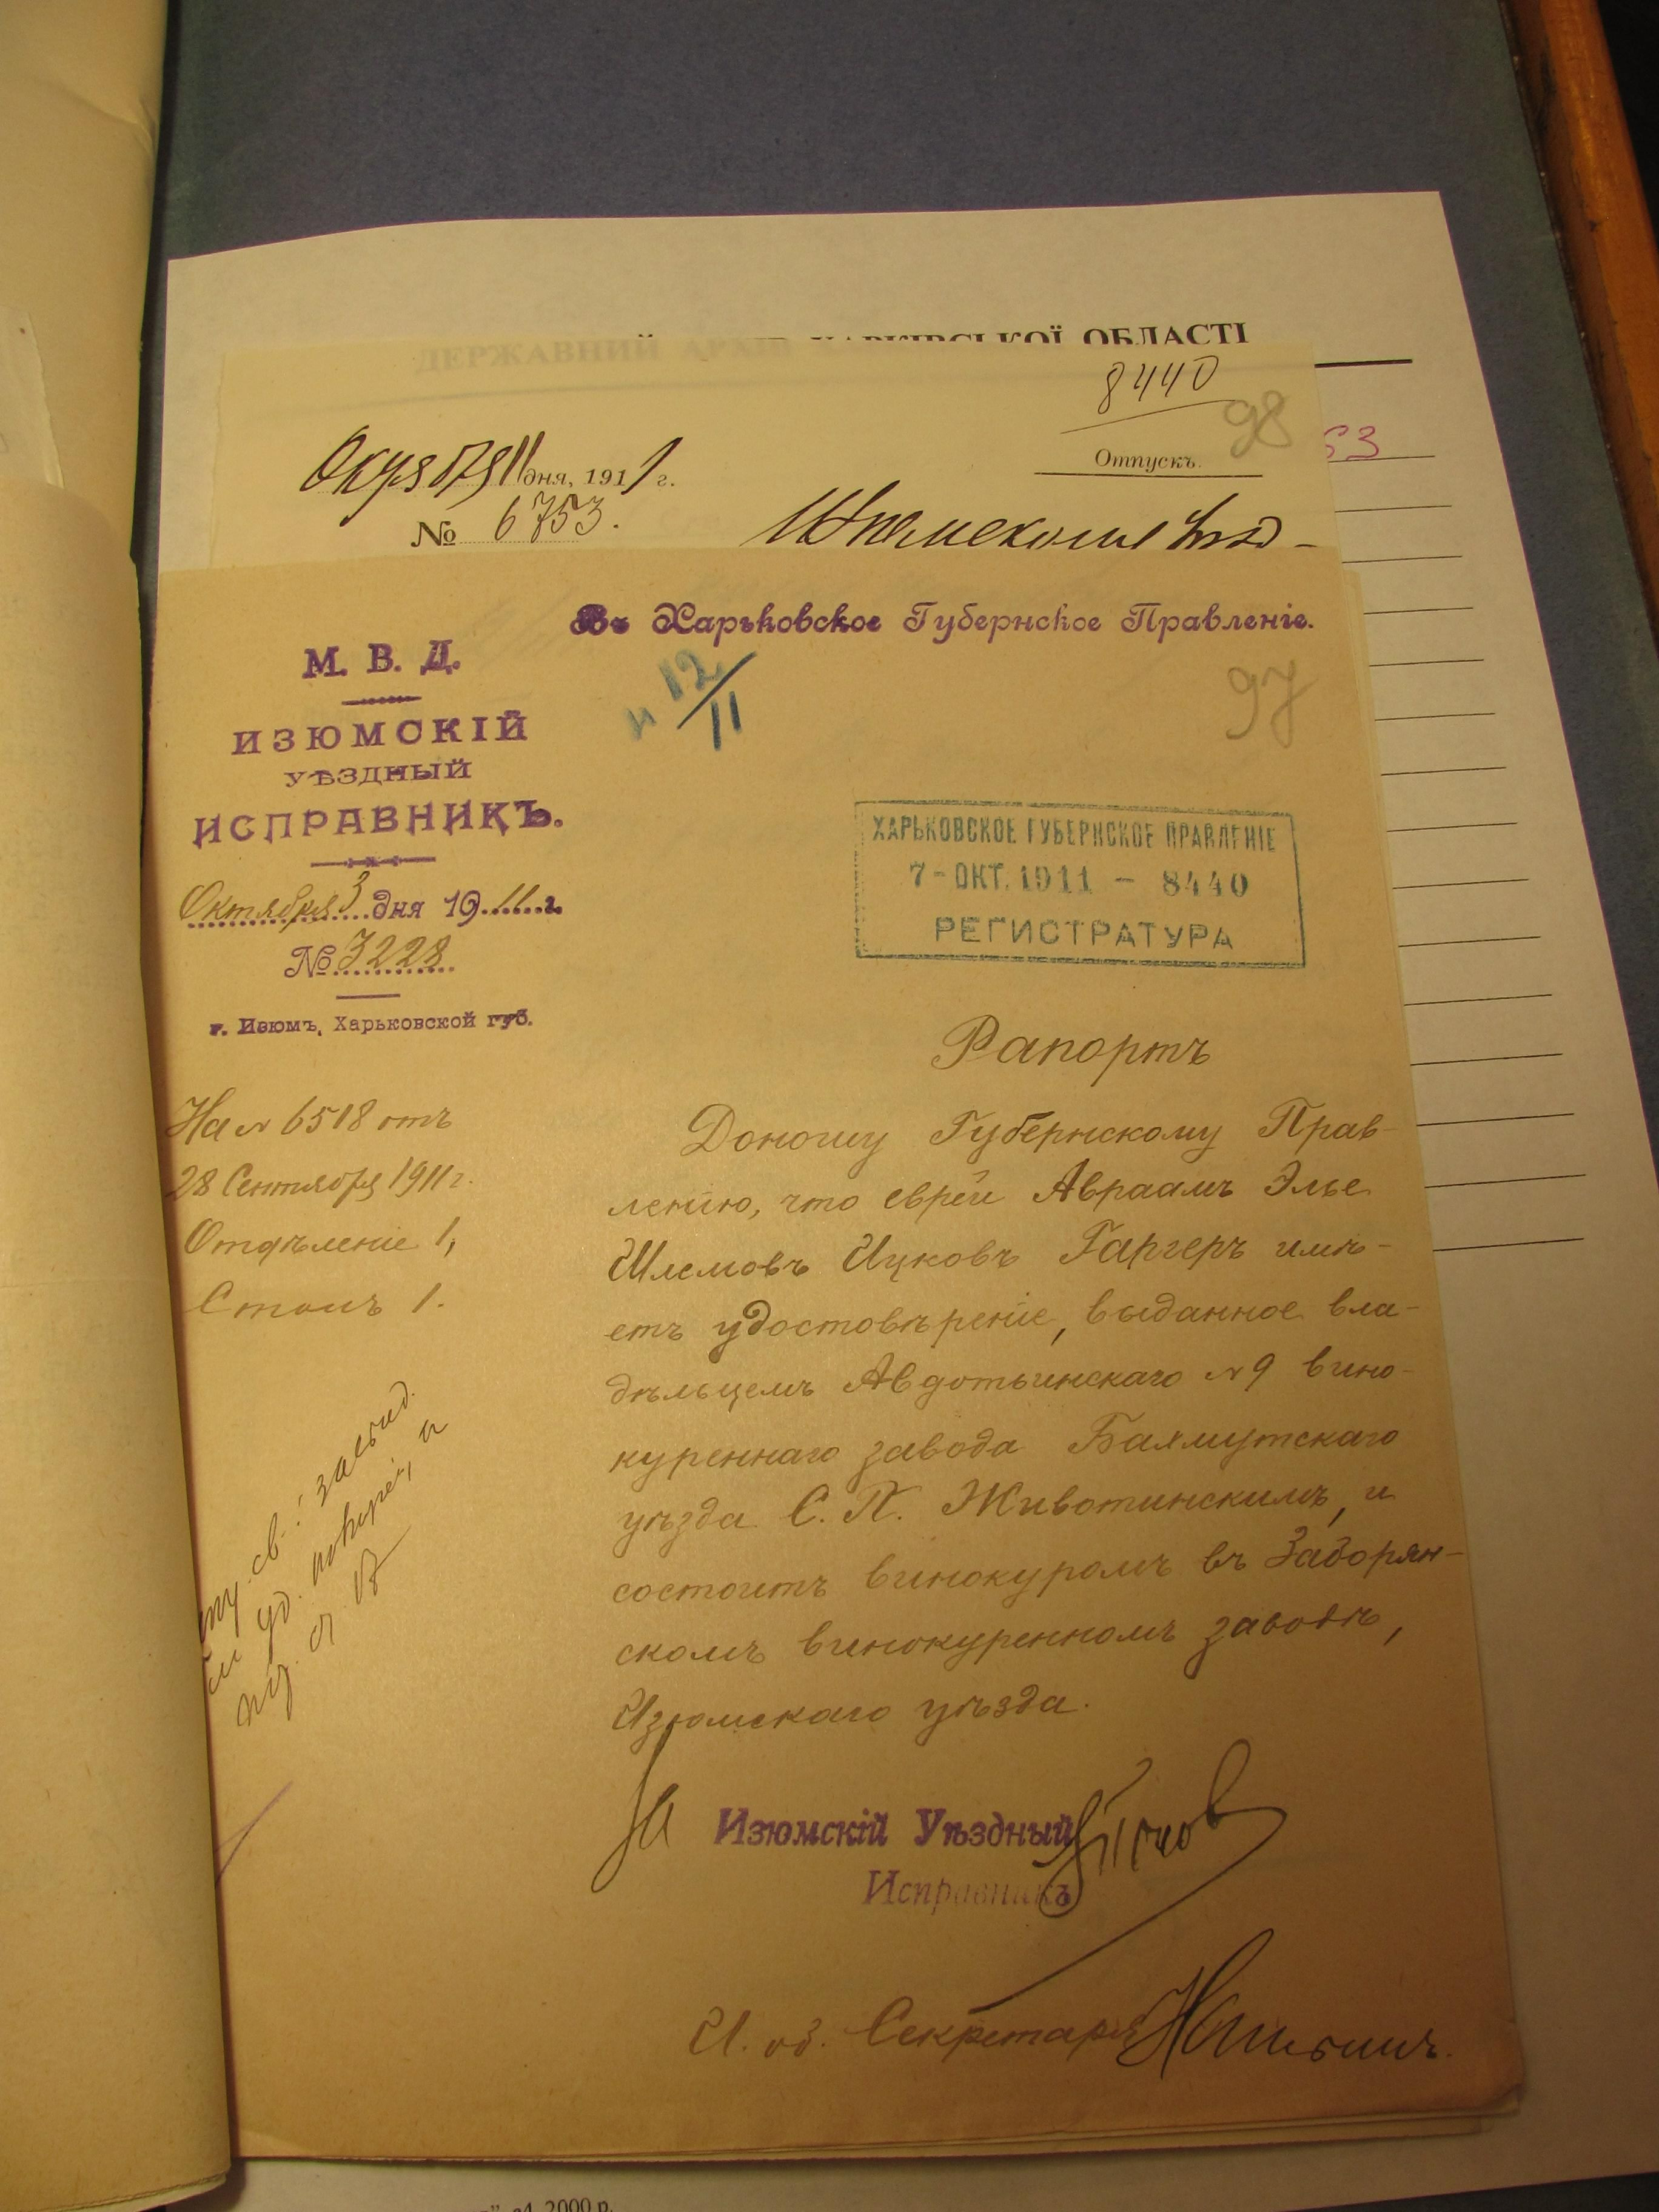 ДЕРЖАВНИЙ АРХІВ ХАРКІВСЬКОЇ ОБЛАСТІ
8440
98
63
Отпускъ.
11 дня, 1911 г.
№ 6753.
Въ Харьковское Губернское Правленіе.
М. В. Д.
ИЗЮМСКІЙ
УѢЗДНЫЙ
ИСПРАВНИКЪ.
Октября 3 дня 1911 г.
№ 3228
г. Изюмъ, Харьковской губ.
12/11
97
ХАРЬКОВСКОЕ ГУБЕРНСКОЕ ПРАВЛЕНІЕ
7-ОКТ.1911 - 8440
РЕГИСТРАТУРА
На № 6518 отъ
28 Сентября 1911 г.
Отдѣленіе 1,
Столъ 1.
Рапортъ
Доношу Губернскому Прав-
ленію, что еврей Авраамъ Элье
Шлемовъ Ицковъ Гаргеръ имѣ-
етъ удостовѣреніе, выданное вла-
дѣльцемъ Авдотьинскаго №9 вино-
куреннаго завода Бахмутскаго
уѣзда С. П. Животинскимъ, и
состоитъ винокуромъ въ Заборян-
скомъ винокуренномъ заводѣ,
Изюмскаго уѣзда.
За Изюмскій Уѣздный
Исправникъ
И. об. Секретаря
2000 р.